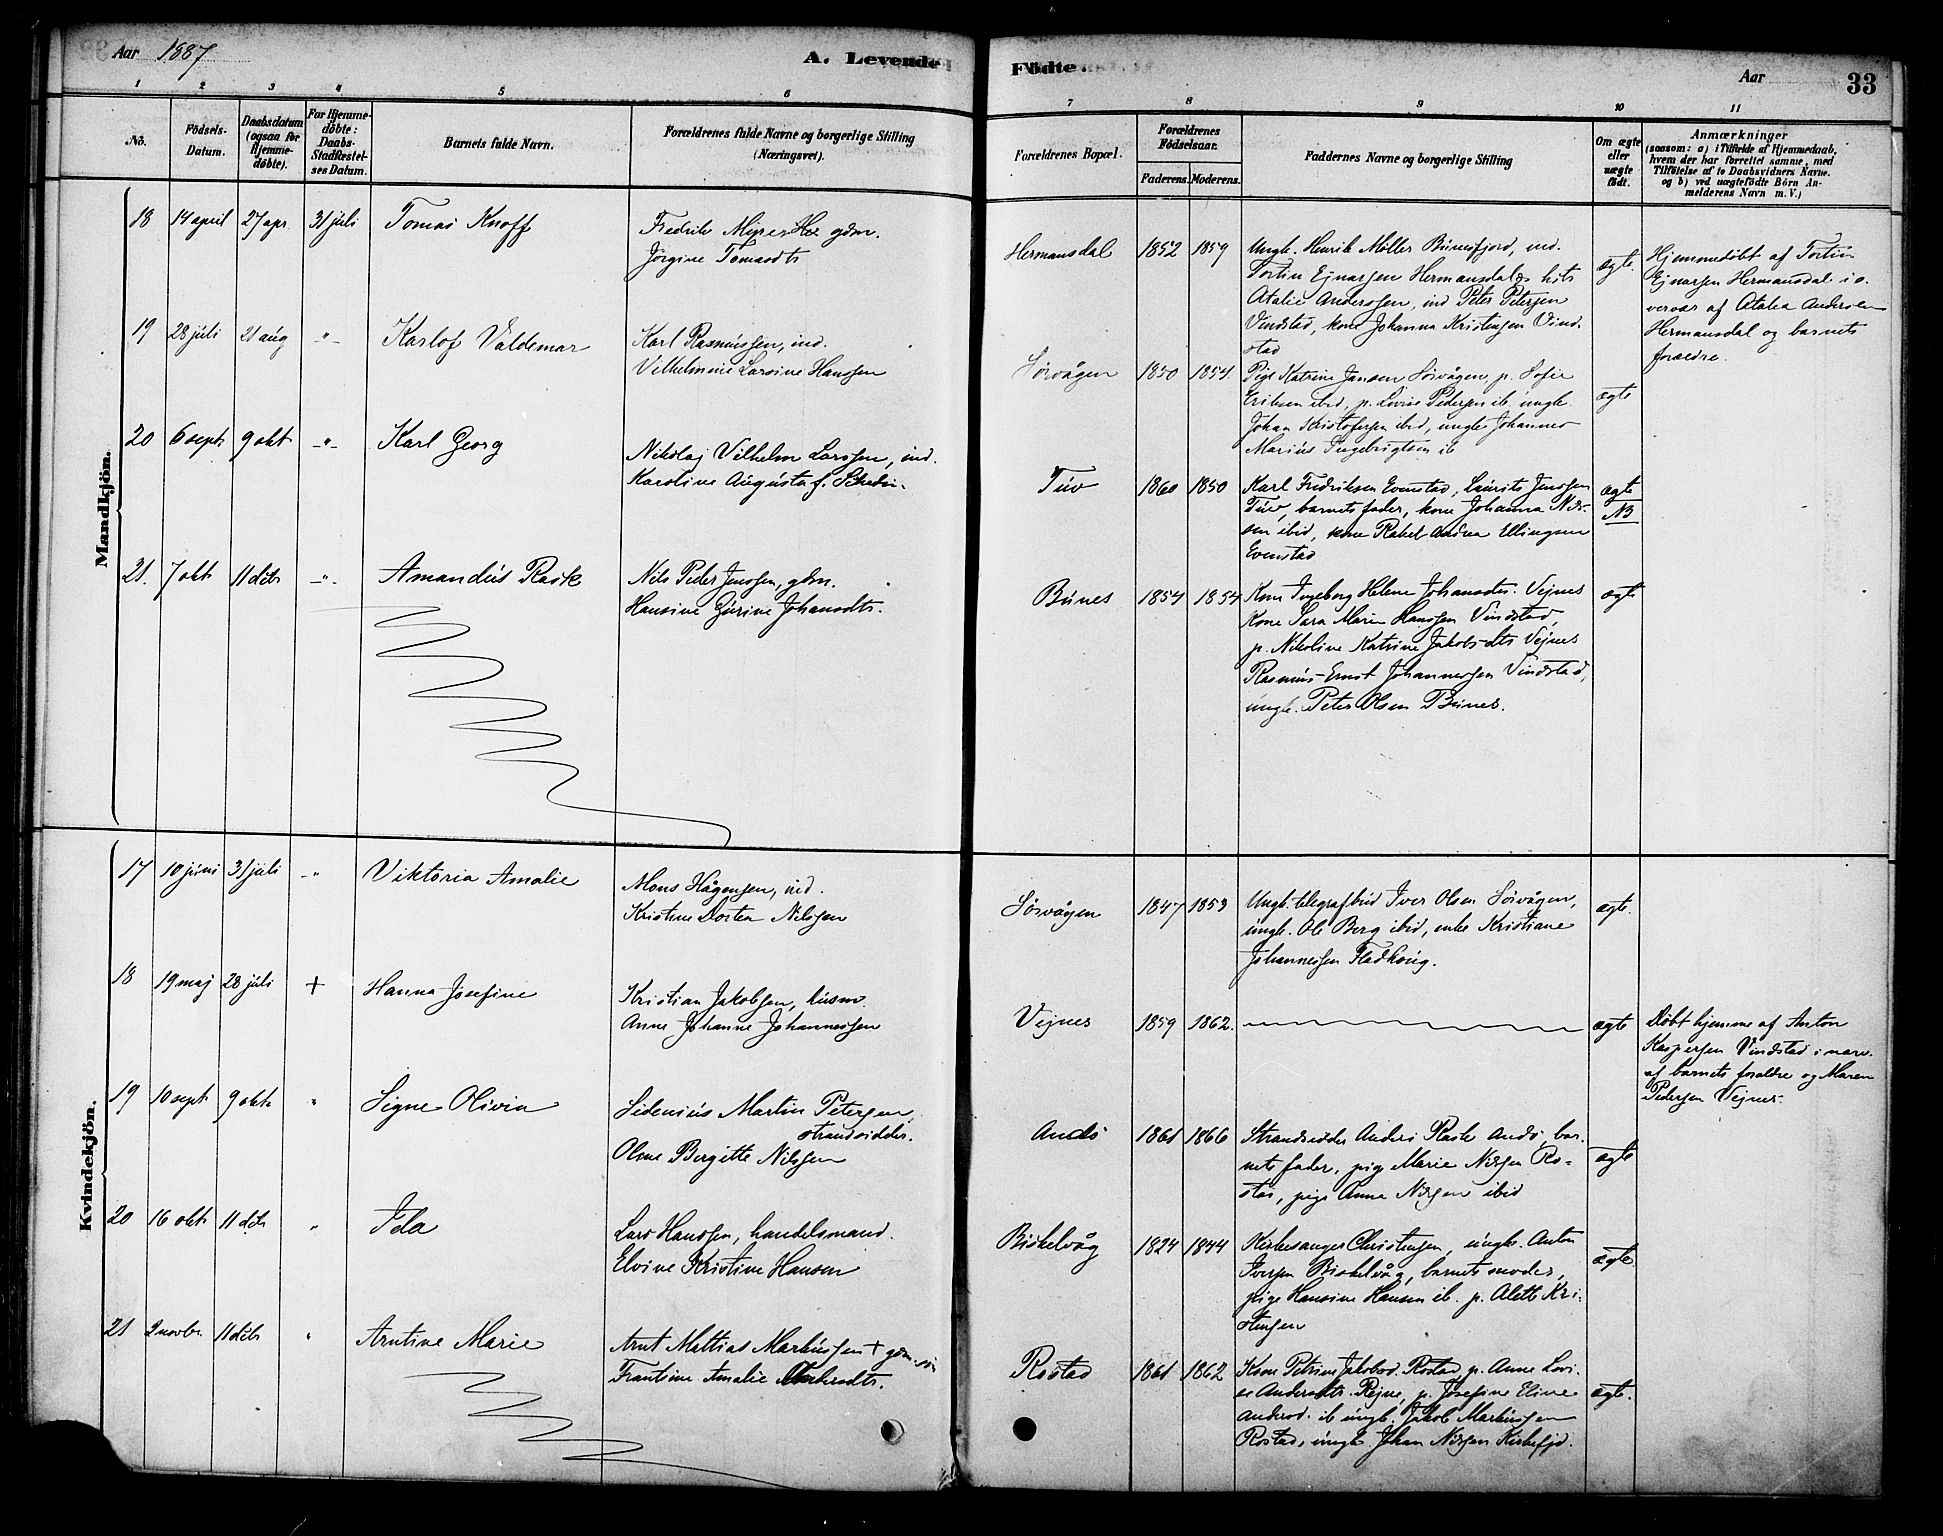 Aar 1887
A. Levende
Födte.
Aar
33
1 2 3 4 5 6 7 8 9 10 11
No.
Födsels-
Datum.
Daabsdatum
(ogsaa for
Hjemme-
döbte).
For Hjemme-
döbte:
Daabs-
Stadfæstel-
ses Datum.
Barnets fulde Navn.
Forældrenes fulde Navne og borgerlige Stilling
(Næringsvei).
Forældrenes Bopæl.
Forældrenes
Födselsaar.
Faderens. Moderens.
Faddernes Navne og borgerlige Stilling
Om ægte
eller
uægte
födt.
Anmærkninger
(saasom: a) i Tilfælde af Hjemmedaab,
hvem der har forrettet samme, med
Tilföielse af to Daabsvidners Navne.
og b) ved uægtefödte Börn An-
melderens Navn m. V.)
Mandkjön.
18 14 april 27 apr. 31 juli Tomas Knoff
Fredrik Meyer gdm.
Jørgine Tomasdtr
Hermansdal 1852 1859
Ungk. Henrik Møller Bunesfjord, ind.
Tortin Ejnarsen Hermansdal, hs
Atalie Anderssen, ind Peter Petersen
Vindstad, kone Johanna Kristensen Vind-
stad
ægte.
Hjemmedøbt af Tortin
Ejnarsen Hermansdal i o-
vervær af Atalia Andersen
Hermansdal og barnets
forældre.
19 28 juli 21 aug -"- Karlof Valdemar
Karl Rasmussen, ind.
Vilhelmine Larsine Hanssen
Sørvågen 1850 1854.
Pige Katrine Jansen Sørvågen, p. Sofie
Eriksen ibid, p. Lovise Pedersen ib. ungk.
Johan Kristofersen ibid, ungk Johannes
Marius Ingebrigtsen ib
ægte
20 6 sept 9 okt -"- Karl Georg
Nikolaj Vilhelm Larssen, ind.
Karoline Augusta f.
Tuv 1860 1850
Karl Fredriksen Evenstad, Laurits Jenssen
Tuv, barnets fader, kone Johanna Nils-
sen ibid, kone Rakel Andrea Ellingsen
Evenstad
ægte
NB
21. 7 okt 11 dcbr -"- Amandus Rask
Nils Peder Jenssen, gdm.
Hansine Gurine Johansdtr.
Bunes 1854 1854
Kone Ingeborg Helene Johansdtr. Vejnes
Kone Sara Marie Hanssen Vindstad,
p. Nikoline Katrine Jakobsdtr Vejnes
Rasmus Ernst Johannessen Vindstad,
ungk. Peter Olsen Bunes.
ægte
Kvindekjön.
17 10 juni 31 juli -"- Viktoria Amalie
Mons Hågensen, ind.
Kristine Dortea Nilssen
Sørvågen 1847 1853
Ungk. telegrafbud Iver Olsen Sørvågen,
ungk. Ole Berg ibid, enke Kristiane
Johannessen Fladkoug.
ægte.
18 19 maj 28 juli + Hanna Josefine
Kristian Jakobsen, husm.
Anne Johanne Johannessen
Vejnes 1859 1862.
ægte
Døbt hjemme af Anton
Kaspersen Vindstad i nærv.
af barnets forældre og Maren
Pedersen Vejnes.
19 10 sept 9 okt " Signe Olivia
Sidenius Martin Petersen,
strandsidder.
Oline Bergitte Nilssen
Andø 1861 1866
Strandsidder Anders Rask Andø, bar-
nets fader, pige Marie Nilssen Ro-
stad, pige Anna Nilssen ibid
ægte
20 16 okt 11 dcbr " Ida
Lars Hanssen, handelsmand.
Elvine Kristine Hansen
Biskelvåg 1824 1844
Kirkesanger Christensen, ungk. Anton
Iversen Biskelvåg, barnets moder,
pige Hansine Hansen ib. p. Aleth Kri-
stensen
ægte.
21 2 novbr. 11 dcbr " Arntine Marie
Arnt Mattias Markussen + gdm.søn
Frantine Amalie
Rostad 1861 1862
Kone Petrine Jakobsd. Rostad, p. Anne Lovi-
se Andersdtr. Rejne, p. Josefine Eline
Andersd. ib ungk. Jakob Markussen
Rostad, ungk. Johan Nilssen Kirkefjd.
ægte.